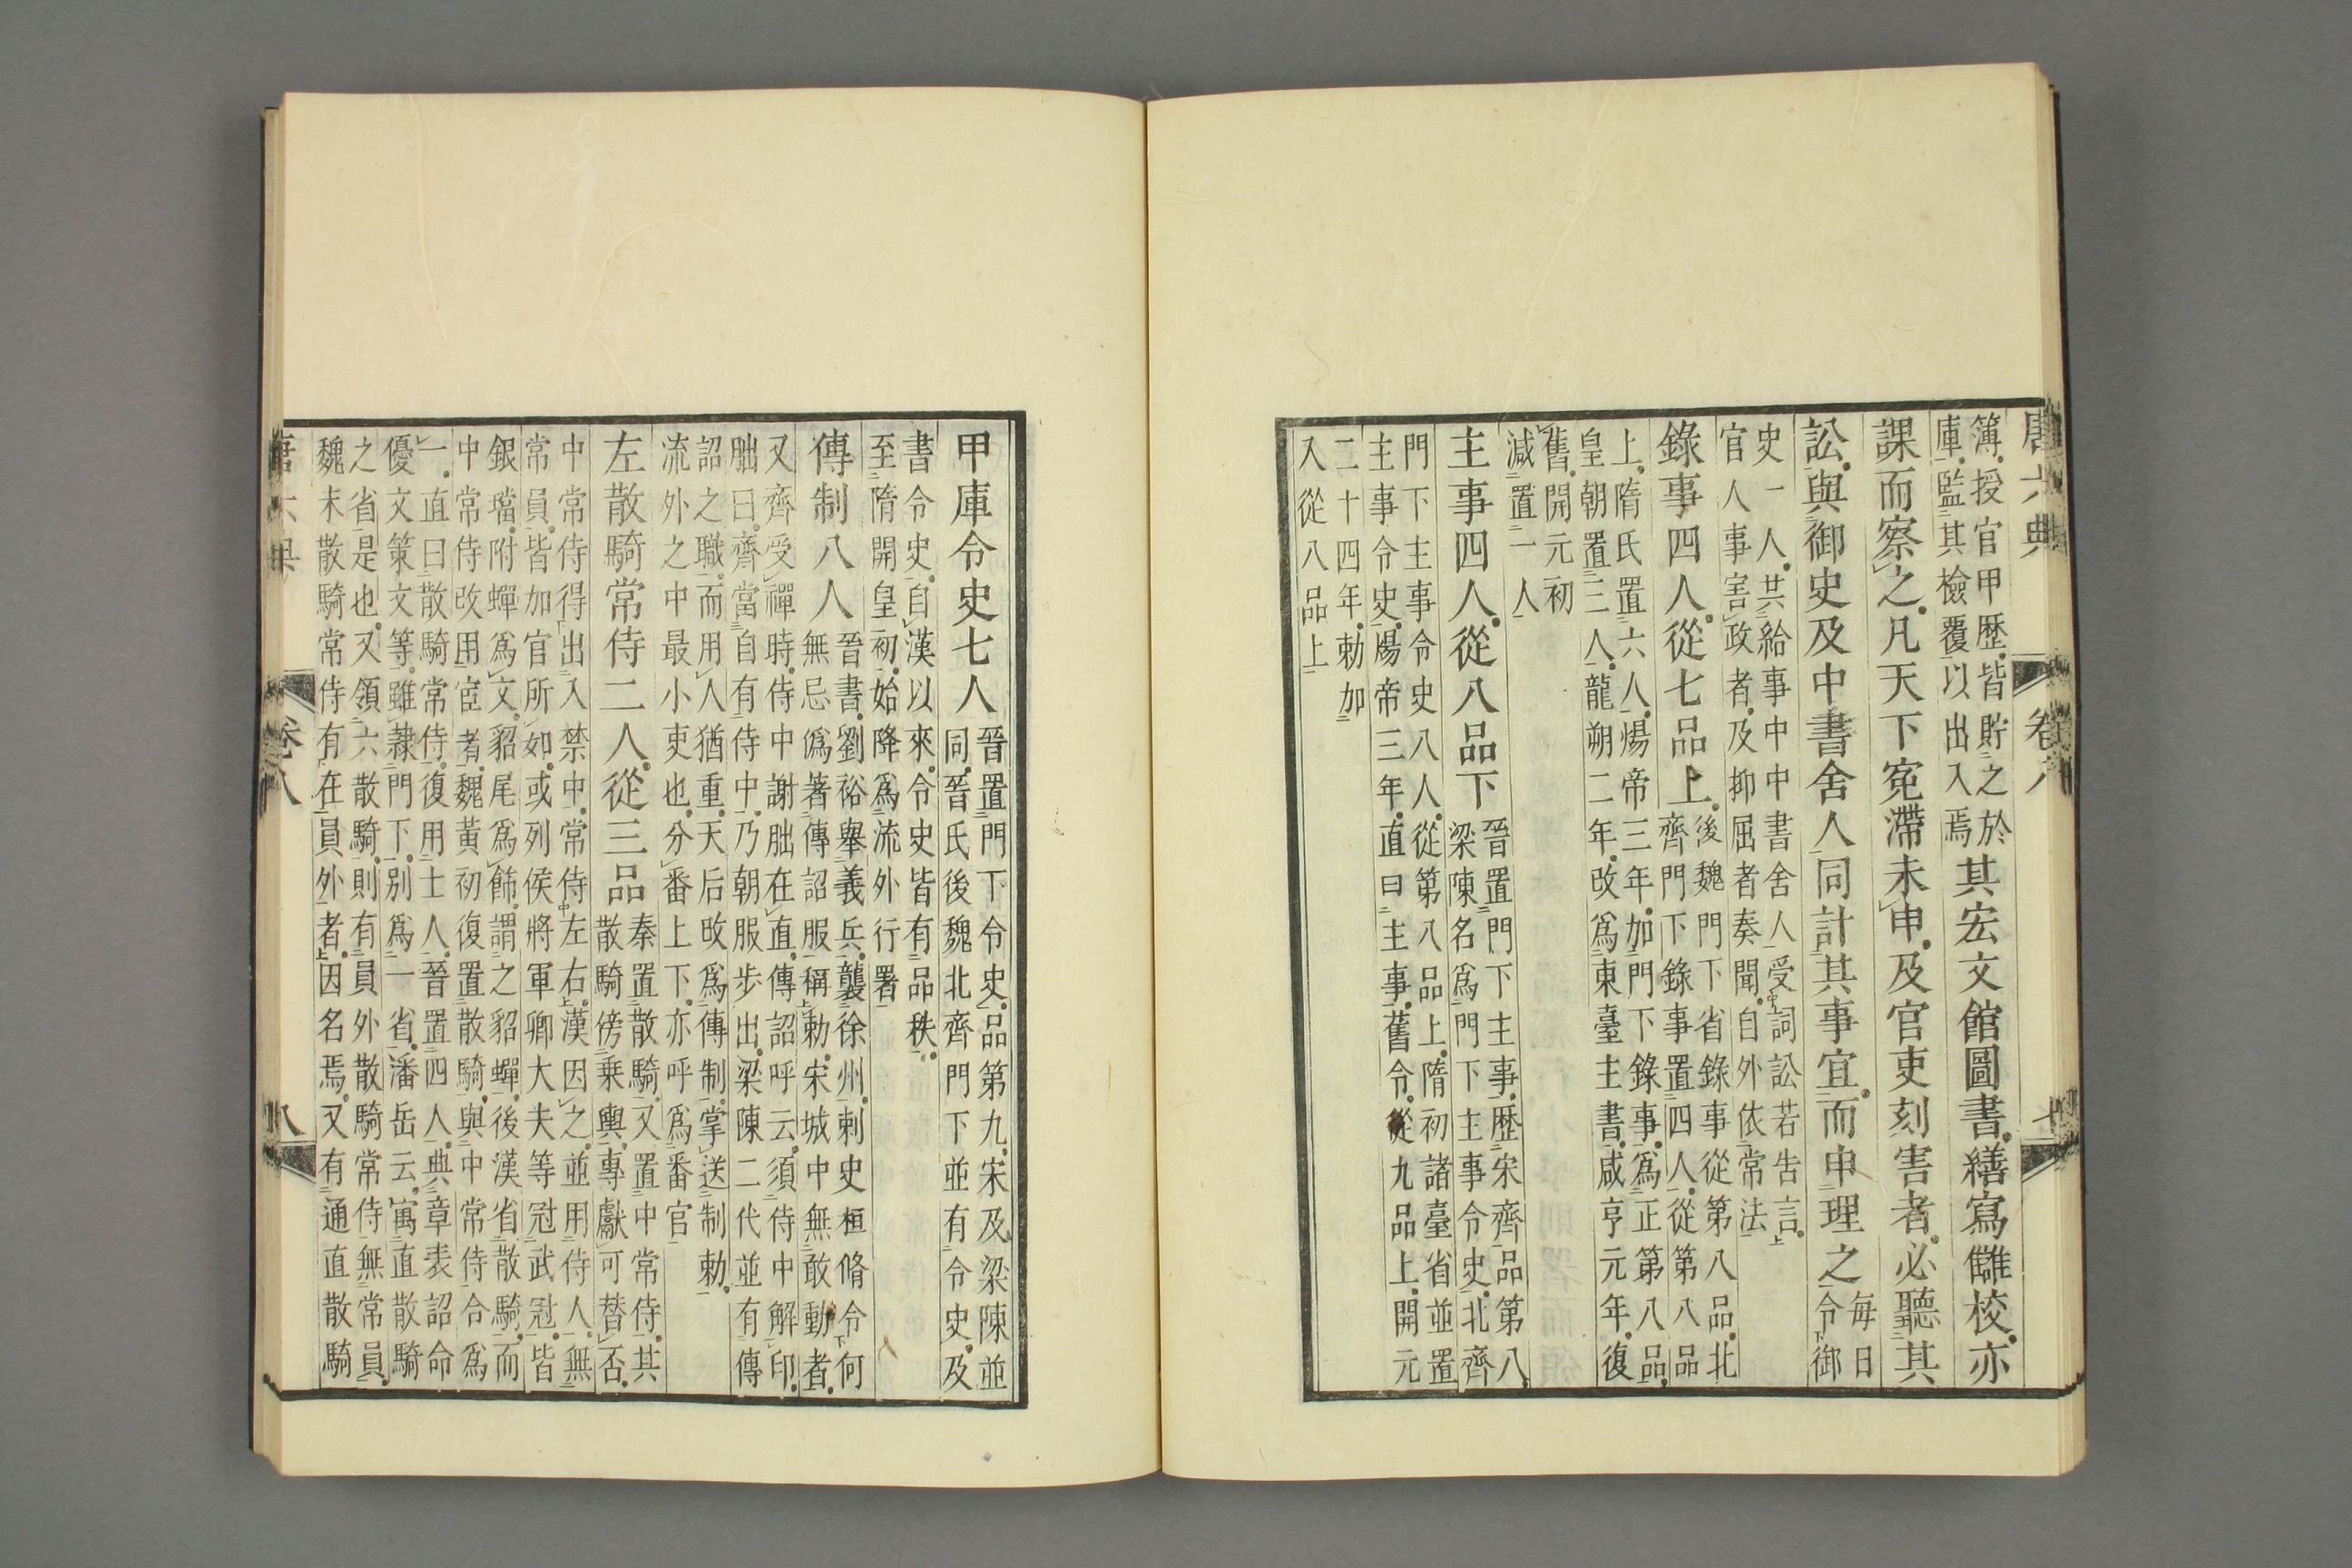 唐六典 卷八 七
簿授官甲歷皆貯之於
庫監其檢覆以出入焉
其宏文館圖書繕寫讎校亦
課而察之凡天下寃滯未申及官吏刻害者必聽其
訟與御史及中書舍人同計其事宜而申理之
每日
令御
史一人共給事中中書舍人受詞訟若告言
官人事害政者及抑屈者奏聞自外依常法
錄事四人從七品上
後魏門下省錄事從第八品北
齊門下錄事置四人從第八品
上隋氏置六人煬帝三年加門下錄事爲正第八品
皇朝置二人龍朔二年改爲東臺主書咸亨元年復
舊開元初
減置一人
主事四人從八品下
晉置門下主事歷宋齊品第八
梁陳名爲門下主事令史北齊
門下主事令史八人從第八品上隋初諸臺省並置
主事令史煬帝三年直曰主事舊令從九品上開元
二十四年勅加
入從八品上
甲庫令史七人
晉置門下令史品第九宋及梁陳並
同晉氏後魏北齊門下並有令史及
書令史自漢以來令史皆有品秩
至隋開皇初始降爲流外行署
傳制八人
晉書劉裕舉義兵襲徐州刺史桓脩令何
無忌僞著傳詔服稱勅宋城中無敢動者
又齊受禪時侍中謝朏在直傳詔呼云須侍中解印
朏曰齊當自有侍中乃朝服步出梁陳二代並有傳
詔之職而用人猶重天后改爲傳制掌送制勅
流外之中最小吏也分番上下亦呼爲番官
左散騎常侍二人從三品
秦置散騎又置中常侍其
散騎傍乘輿專獻可替否
中常侍得出入禁中常侍左右漢因之並用侍人無
常員皆加官所如或列侯將軍卿大夫等冠武冠皆
銀璫附蟬爲文貂尾爲飾謂之貂蟬後漢省散騎而
中常侍改用宦者魏黃初復置散騎與中常侍合爲
一直曰散騎常侍復用士人晉置四人典章表詔命
優文策文等雖隷門下別爲一省潘岳云寓直散騎
之省是也又領六散騎則有員外散騎常侍無常員
魏末散騎常侍有在員外者因名焉又有通直散騎
唐六典 卷八 八